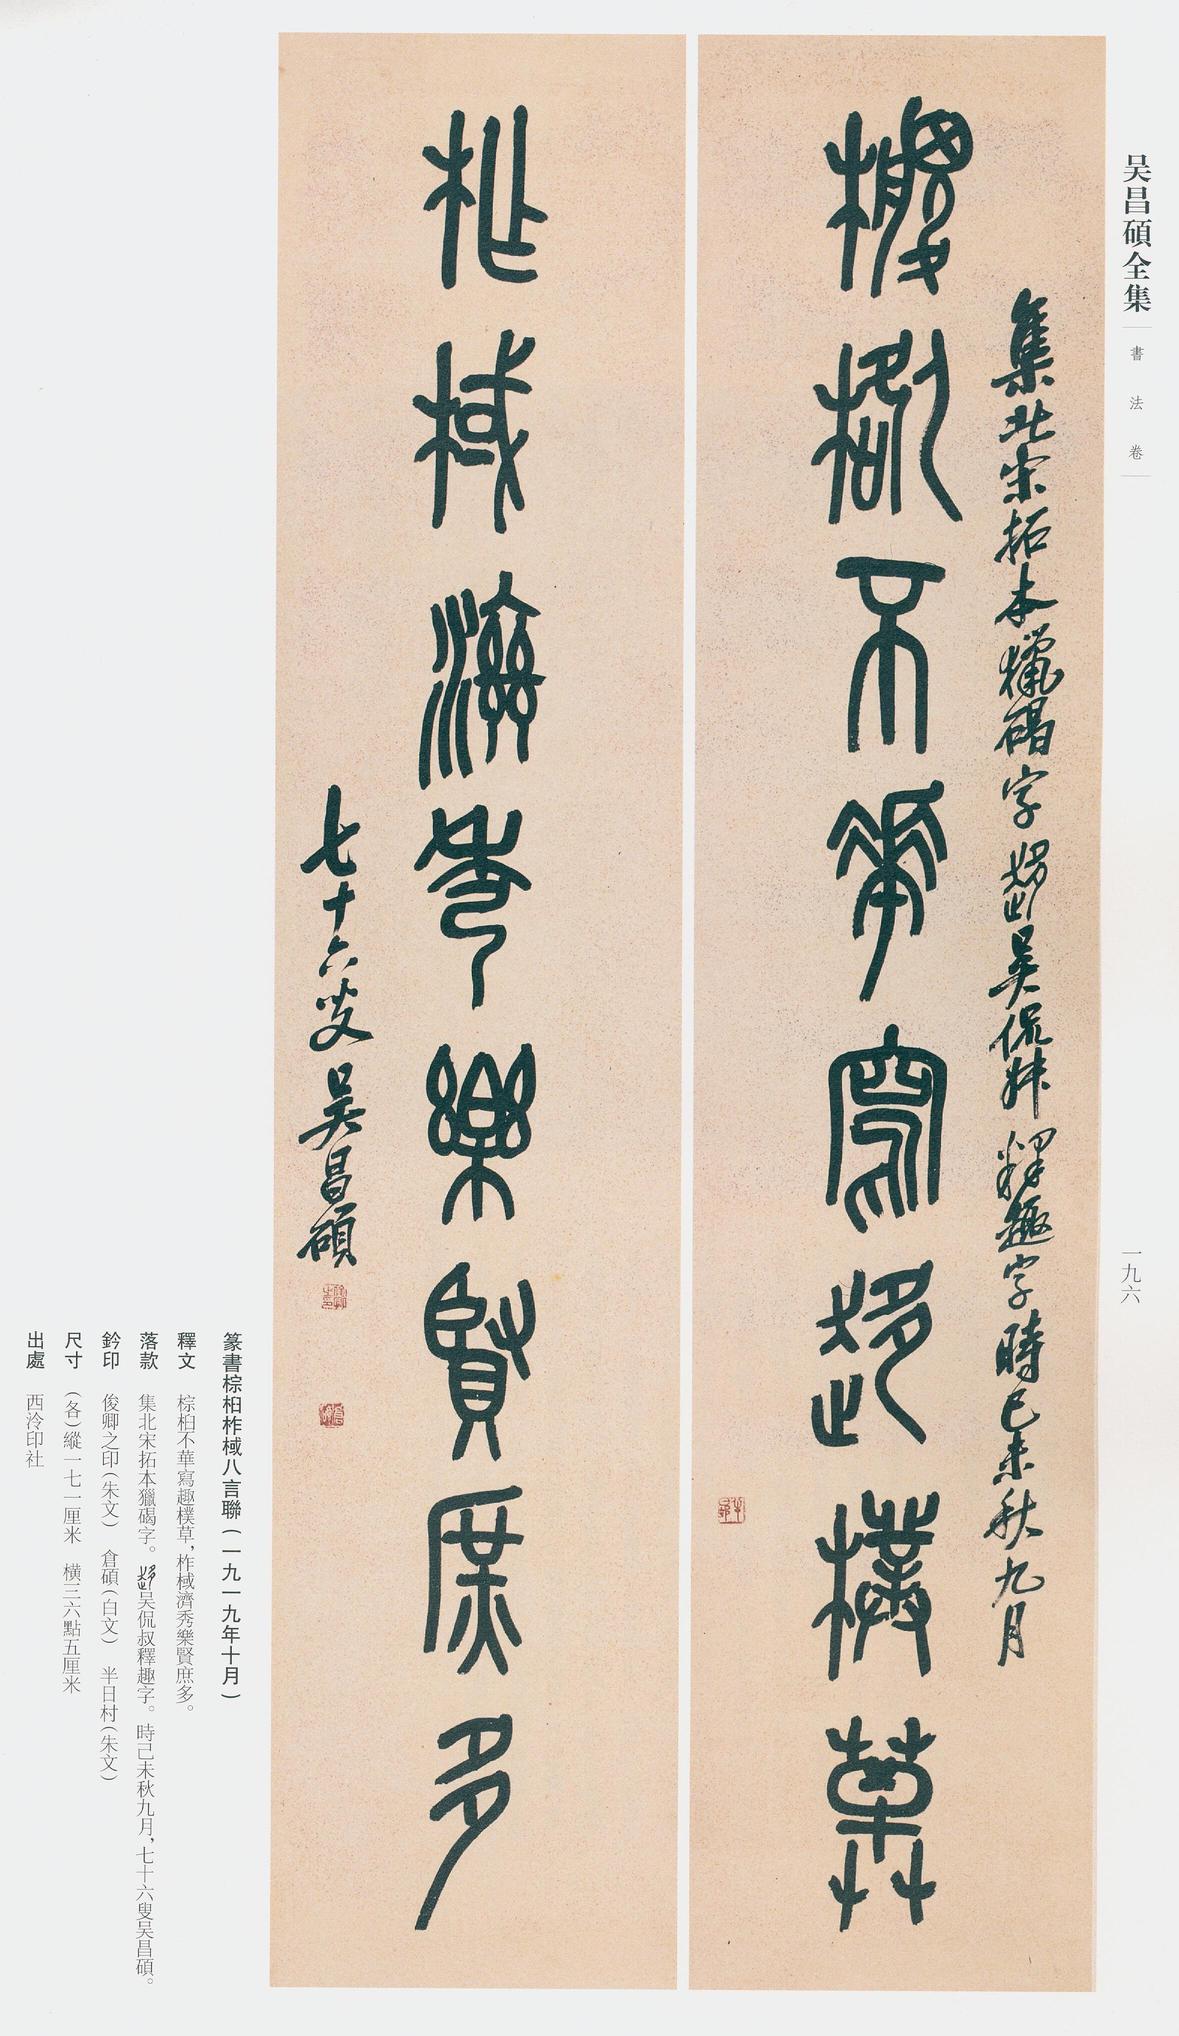 吴昌碩全集
書法卷
一九六
集北宋拓本獵碣字 吴侃叔釋趣字時己未秋九月
棕桕不華寫趣樸草
柞棫濟秀樂賢庶多
七十六叟吴昌碩
篆書棕桕柞棫八言聯(一九一九年十月)
釋文 棕桕不華寫趣樸草,柞棫濟秀樂賢庶多。
落款 集北宋拓本獵碣字。吴侃叔釋趣字。時己未秋九月,七十六叟吴昌碩。
鈐印 俊卿之印(朱文) 倉碩(白文) 半日村(朱文)
尺寸 (各)縱一七一厘米 横三六點五厘米
出處 西泠印社